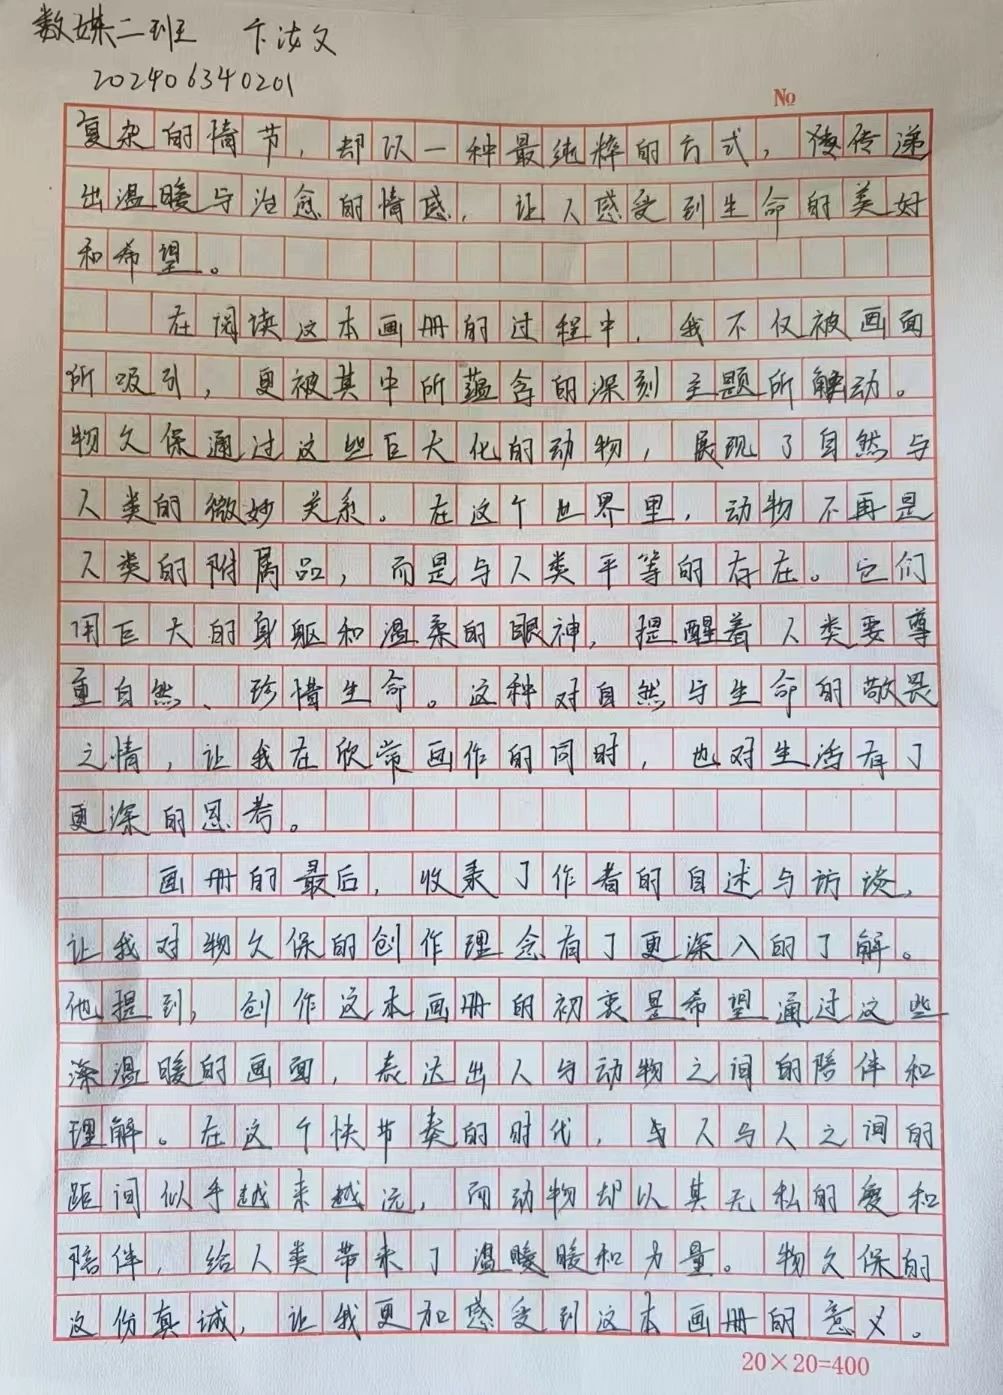 数媒二班 卞洁文
202406340201
№
复杂的情节，却以一种最纯粹的方式，传递
出温暖与治愈的情感，让人感受到生命的美好
和希望。
在阅读这本画册的过程中，我不仅被画面
所吸引，更被其中所蕴含的深刻主题所触动。
物久保通过这些巨大化的动物，展现了自然与
人类的微妙关系。在这个世界里，动物不再是
人类的附属品，而是与人类平等的存在。它们
用巨大的身躯和温柔的眼神，提醒着人类要尊
重自然、珍惜生命。这种对自然与生命的敬畏
之情，让我在欣赏画作的同时，也对生活有了
更深的思考。
画册的最后，收录了作者的自述与访谈，
让我对物久保的创作理念有了更深入的了解。
他提到，创作这本画册的初衷是希望通过这些
深温暖的画面，表达出人与动物之间的陪伴和
理解。在这个快节奏的时代，与人与人之间的
距间似乎越来越远，而动物却以其无私的爱和
陪伴，给人类带来了温暖暖和力量。物久保的
这份真诚，让我更加感受到这本画册的意义。
20×20=400